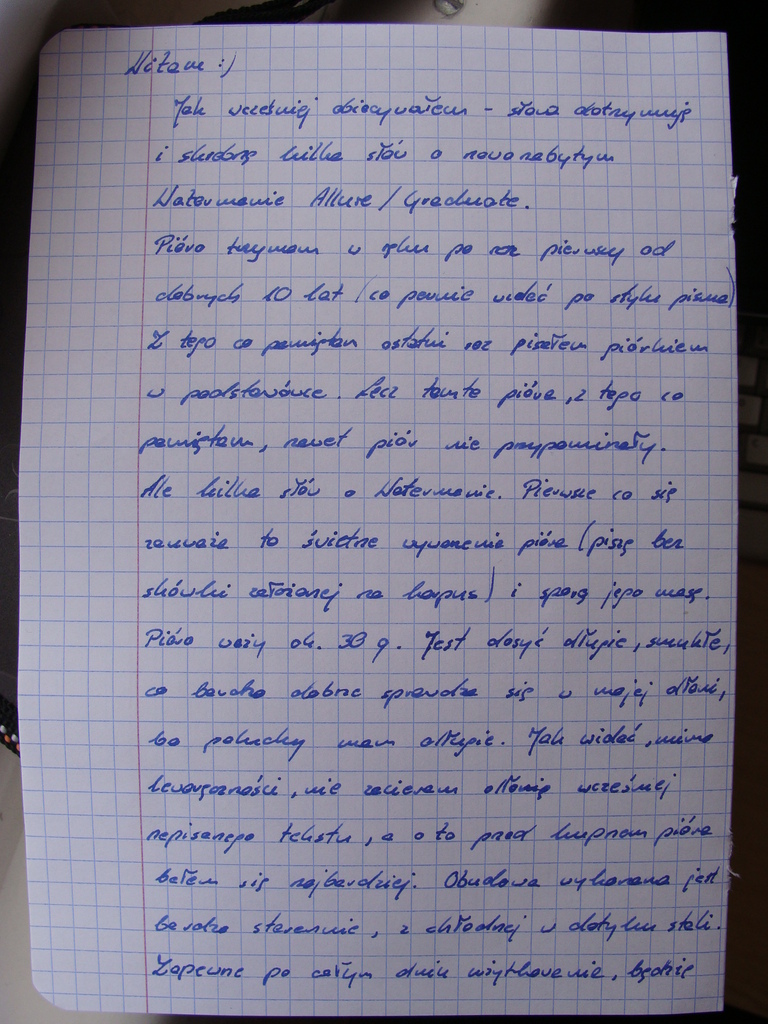 Witam :)
Jak wcześniej obiecywałem - słowa dotrzymuję
i skrobnę kilka słów o nowonabytym
Watermanie Allure / Graduate.
Pióro trzymam w ręku po raz pierwszy od
dobrych 10 lat (co pewnie widać po stylu pisma)
Z tego co pamiętam ostatni raz pisałem piórkiem
w podstawówce. Lecz tamte pióra, z tego co
pamiętam, nawet piór nie przypominały.
Ale kilka słów o Watermanie. Pierwsze co się
zauważa to świetne wyważenie pióra (piszę bez
skówki założonej na korpus) i sporą jego masę.
Pióro waży ok. 30 g. Jest dosyć długie, smukłe,
co bardzo dobrze sprawdza się w mojej dłoni,
bo paluchy mam długie. Jak widać, mimo
leworęczności, nie zacieram dłonią wcześniej
napisanego tekstu, a o to przed kupnem pióra
bałem się najbardziej. Obudowa wykonana jest
bardzo starannie, z chłodnej w dotyku stali.
Zapewne po całym dniu użytkowania, będzie